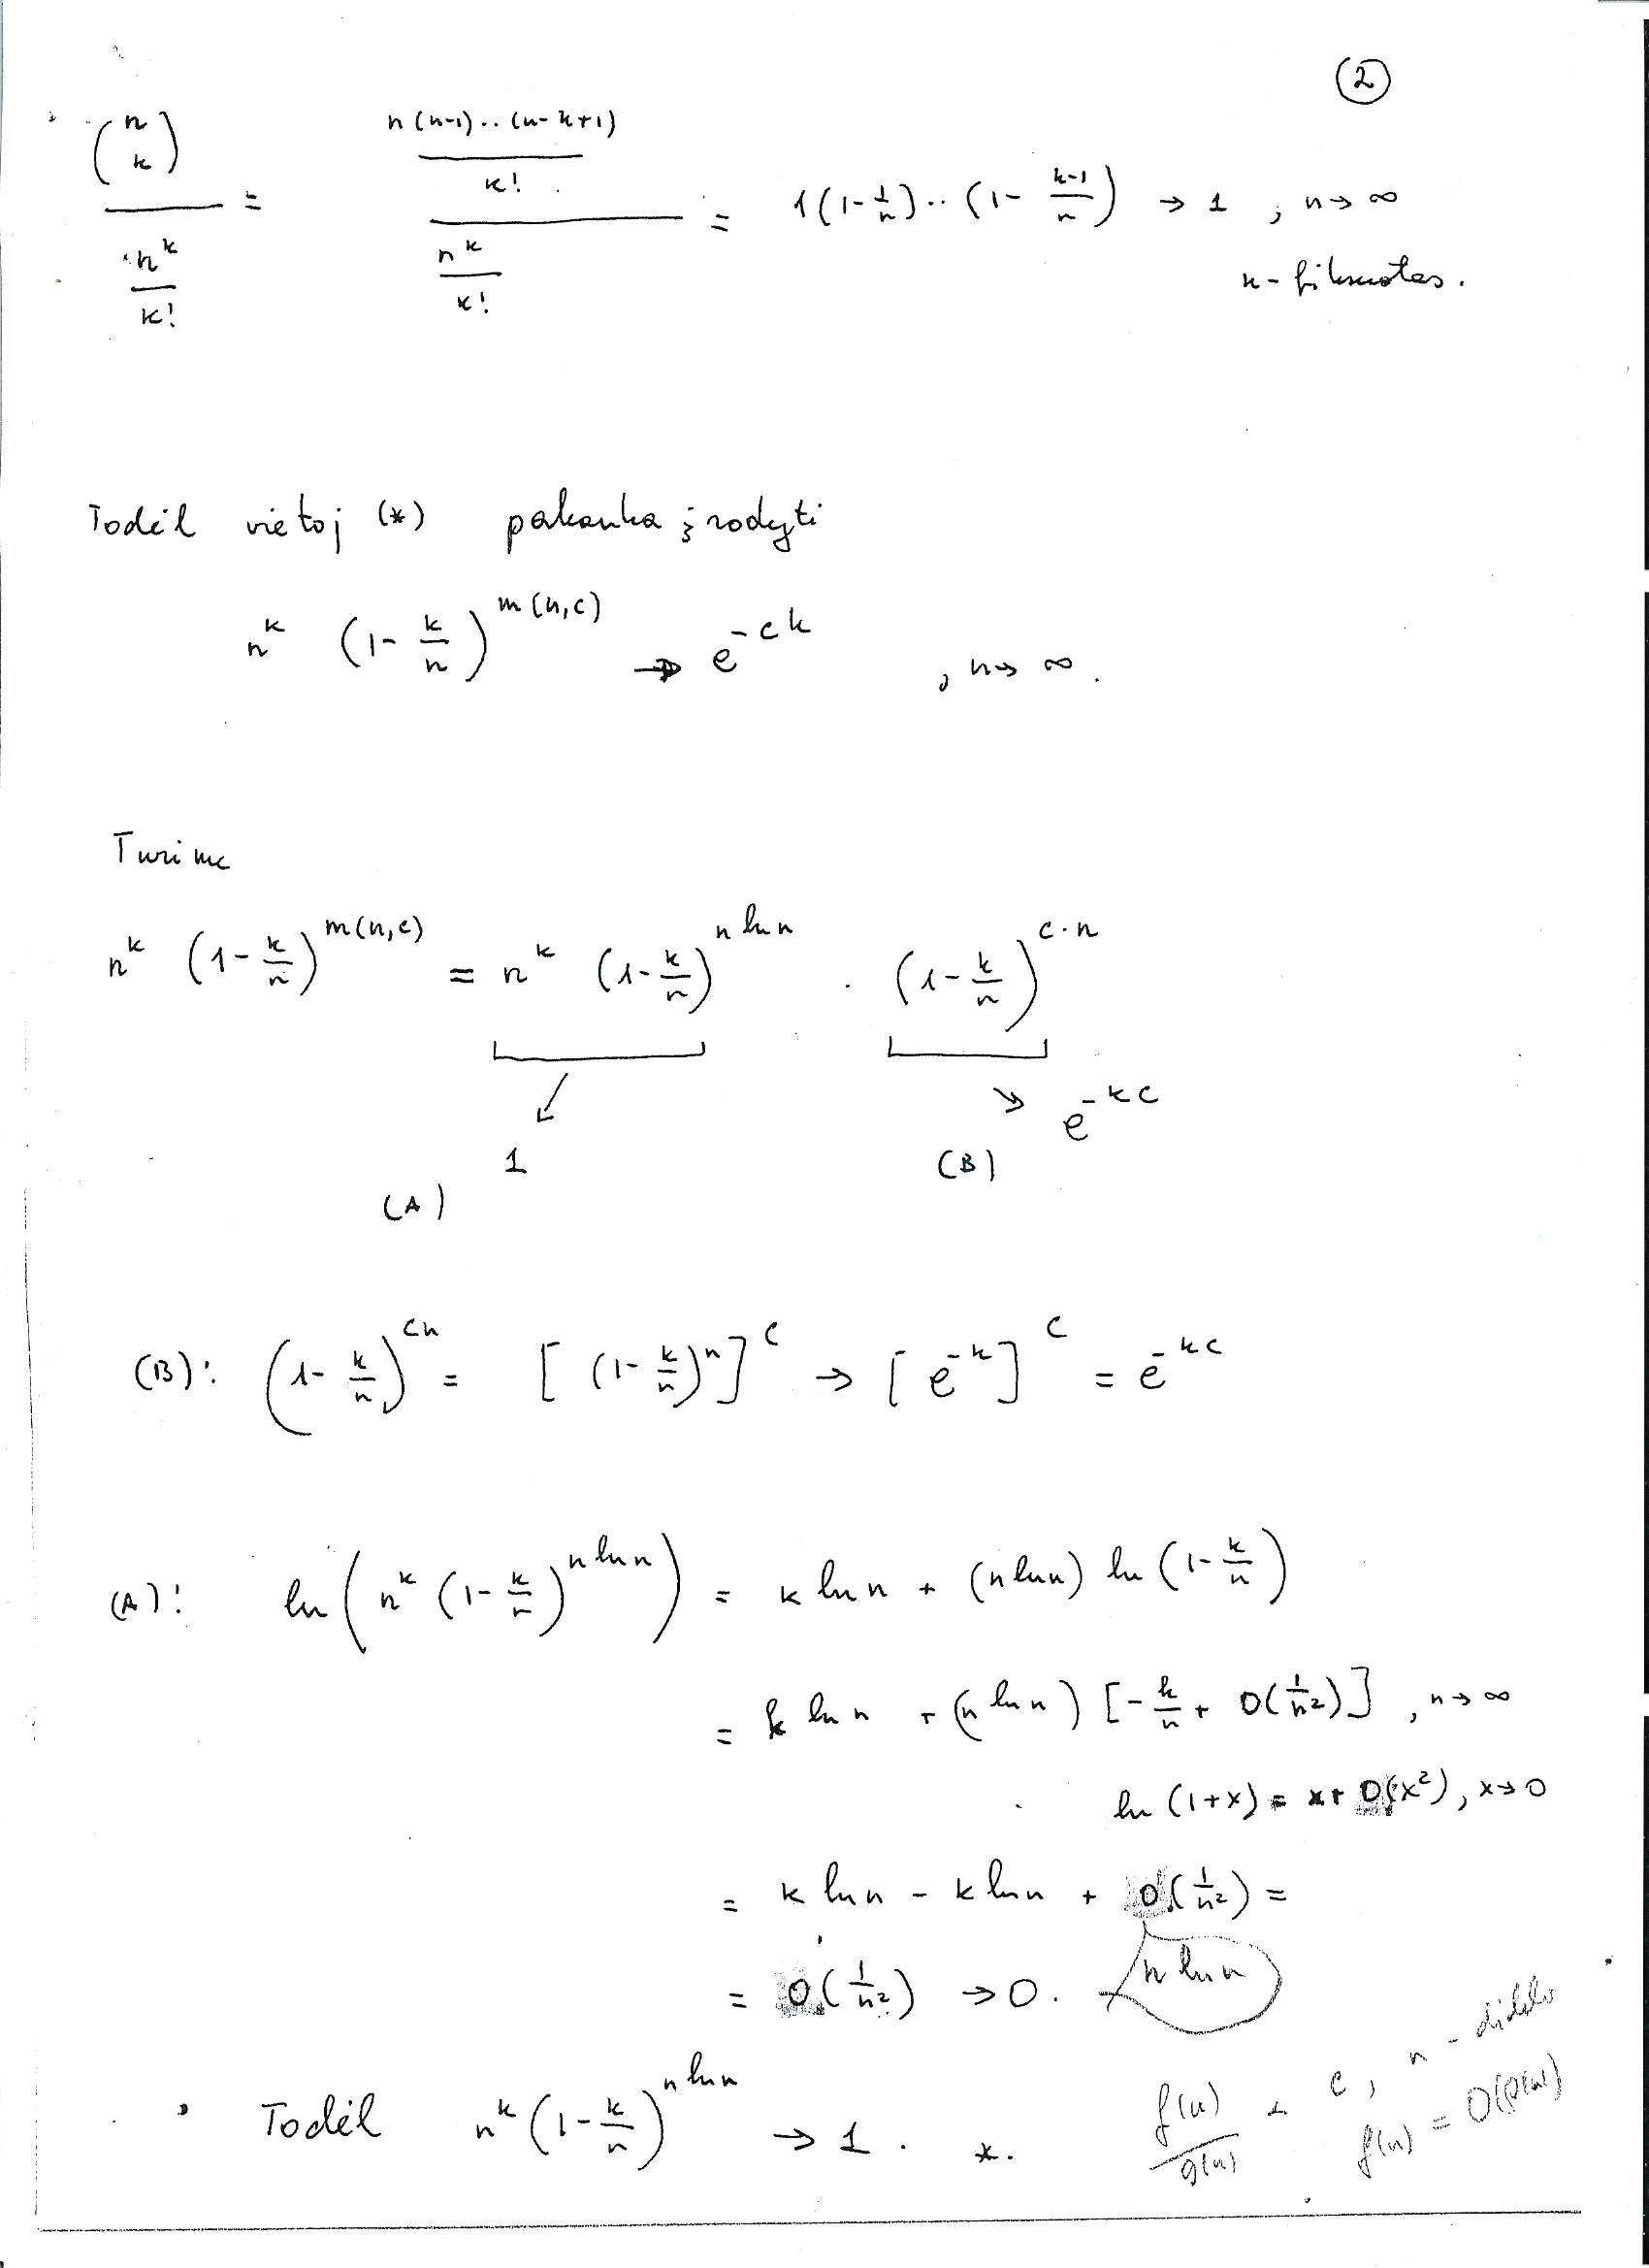 (2)
\frac{\binom{n}{k}}{\frac{n^k}{k!}} = \frac{\frac{n(n-1)..(n-k+1)}{k!}}{\frac{n^k}{k!}} = 1(1-\frac{1}{n})..(1-\frac{k-1}{n}) → 1 ; n→∞
k-fiksuotas.
Todėl vietoj (*) pakanka įrodyti
n^k (1-\frac{k}{n})^{m(n,c)} → e^{-ck} , n→∞.
Turime
n^k (1-\frac{k}{n})^{m(n,c)} = n^k (1-\frac{k}{n})^{n ln n} · (1-\frac{k}{n})^{c·n}
↙ ↘ e^{-kc}
1 (B)
(A)
(B): (1-\frac{k}{n})^{cn} = [(1-\frac{k}{n})^n]^c → [e^{-k}]^c = e^{-kc}
(A): ln(n^k (1-\frac{k}{n})^{n ln n}) = k ln n + (n ln n) ln(1-\frac{k}{n})
= k ln n + (n ln n)[-\frac{k}{n} + O(\frac{1}{n^2})] , n→∞
ln(1+x) = x + O(x^2), x→0
= k ln n - k ln n + O(\frac{1}{n^2}) =
n ln n
= O(\frac{1}{n^2}) → 0.
Todėl n^k (1-\frac{k}{n})^{n ln n} → 1. *.
\frac{f(n)}{g(n)} ≤ c, n - didelis
f(n) = O(g(n))